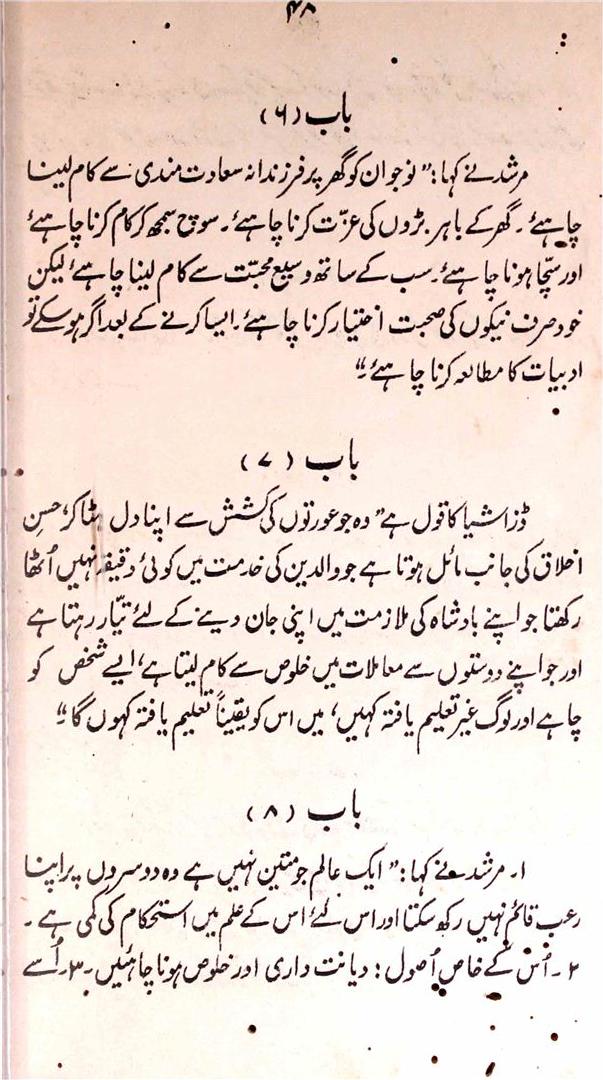 ۴۸
باب (۶)
مرشد نے کہا: ”نوجوان کو گھر پر فرزندانہ سعادت مندی سے کام لینا
چاہئے۔ گھر کے باہر بڑوں کی عزّت کرنا چاہئے۔ سوچ سمجھ کر کام کرنا چاہئے
اور سچّا ہونا چاہئے۔ سب کے ساتھ وسیع محبّت سے کام لینا چاہئے لیکن
خود صرف نیکوں کی صحبت اختیار کرنا چاہئے۔ ایسا کرنے کے بعد اگر ہوسکے تو
ادبیات کا مطالعہ کرنا چاہئے۔“
باب (۷)
ڈزاشیا کا قول ہے ”وہ جو عورتوں کی کشش سے اپنا دل ہٹا کر، حسنِ
اخلاق کی جانب مائل ہوتا ہے جو والدین کی خدمت میں کوئی دقیقہ نہیں اُٹھا
رکھتا جو اپنے بادشاہ کی ملازمت میں اپنی جان دینے کے لئے تیّار رہتا ہے
اور جو اپنے دوستوں سے معاملات میں خلوص سے کام لیتا ہے، ایسے شخص کو
چاہے اور لوگ غیر تعلیم یافتہ کہیں، میں اس کو یقیناً تعلیم یافتہ کہوں گا۔“
باب (۸)
۱۔ مرشد نے کہا: ”ایک عالم جو متین نہیں ہے وہ دوسروں پر اپنا
رعب قائم نہیں رکھ سکتا اور اس لئے اس کے علم میں استحکام کی کمی ہے۔
۲۔ اُس کے خاص اُصول: دیانت داری اور خلوص ہونا چاہئیں۔ ۳۔ اُسے